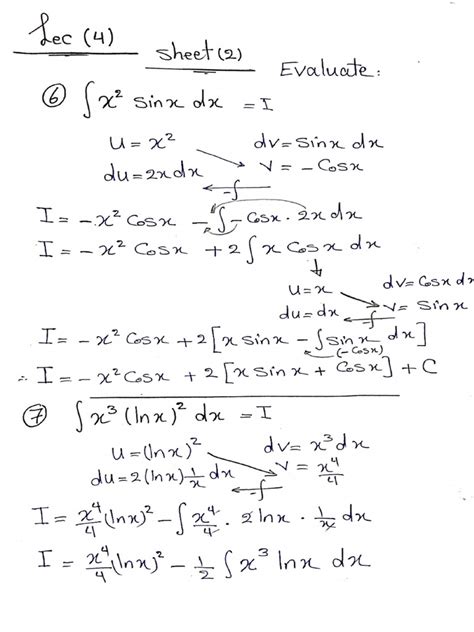 Lec (4)
Sheet (2)
Evaluate:
⑥ ∫ x² sinx dx = I
u = x² dv = sinx dx
du = 2x dx v = - Cosx
-∫
I = -x² Cosx - ∫ - Cosx · 2x dx
I = -x² Cosx + 2 ∫ x Cosx dx
u = x dv = Cosx dx
du = dx v = sinx
-∫
I = -x² Cosx + 2 [x sinx - ∫ sinx dx]
(-Cosx)
∴ I = -x² Cosx + 2 [x sinx + Cosx] + C
⑦ ∫ x³ (lnx)² dx = I
u = (lnx)² dv = x³ dx
du = 2 (lnx) 1/x dx v = x⁴/4
-∫
I = x⁴/4 (lnx)² - ∫ x⁴/4 · 2 lnx · 1/x dx
I = x⁴/4 (lnx)² - 1/2 ∫ x³ lnx dx